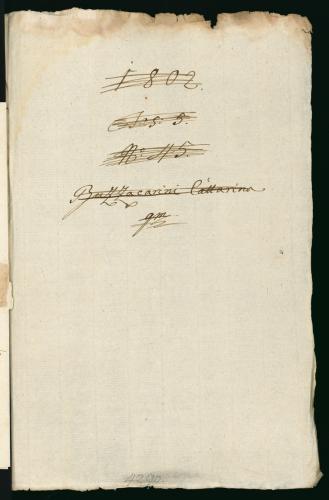 1802.
N° 45.
Buzzacarini Cattarina
qm